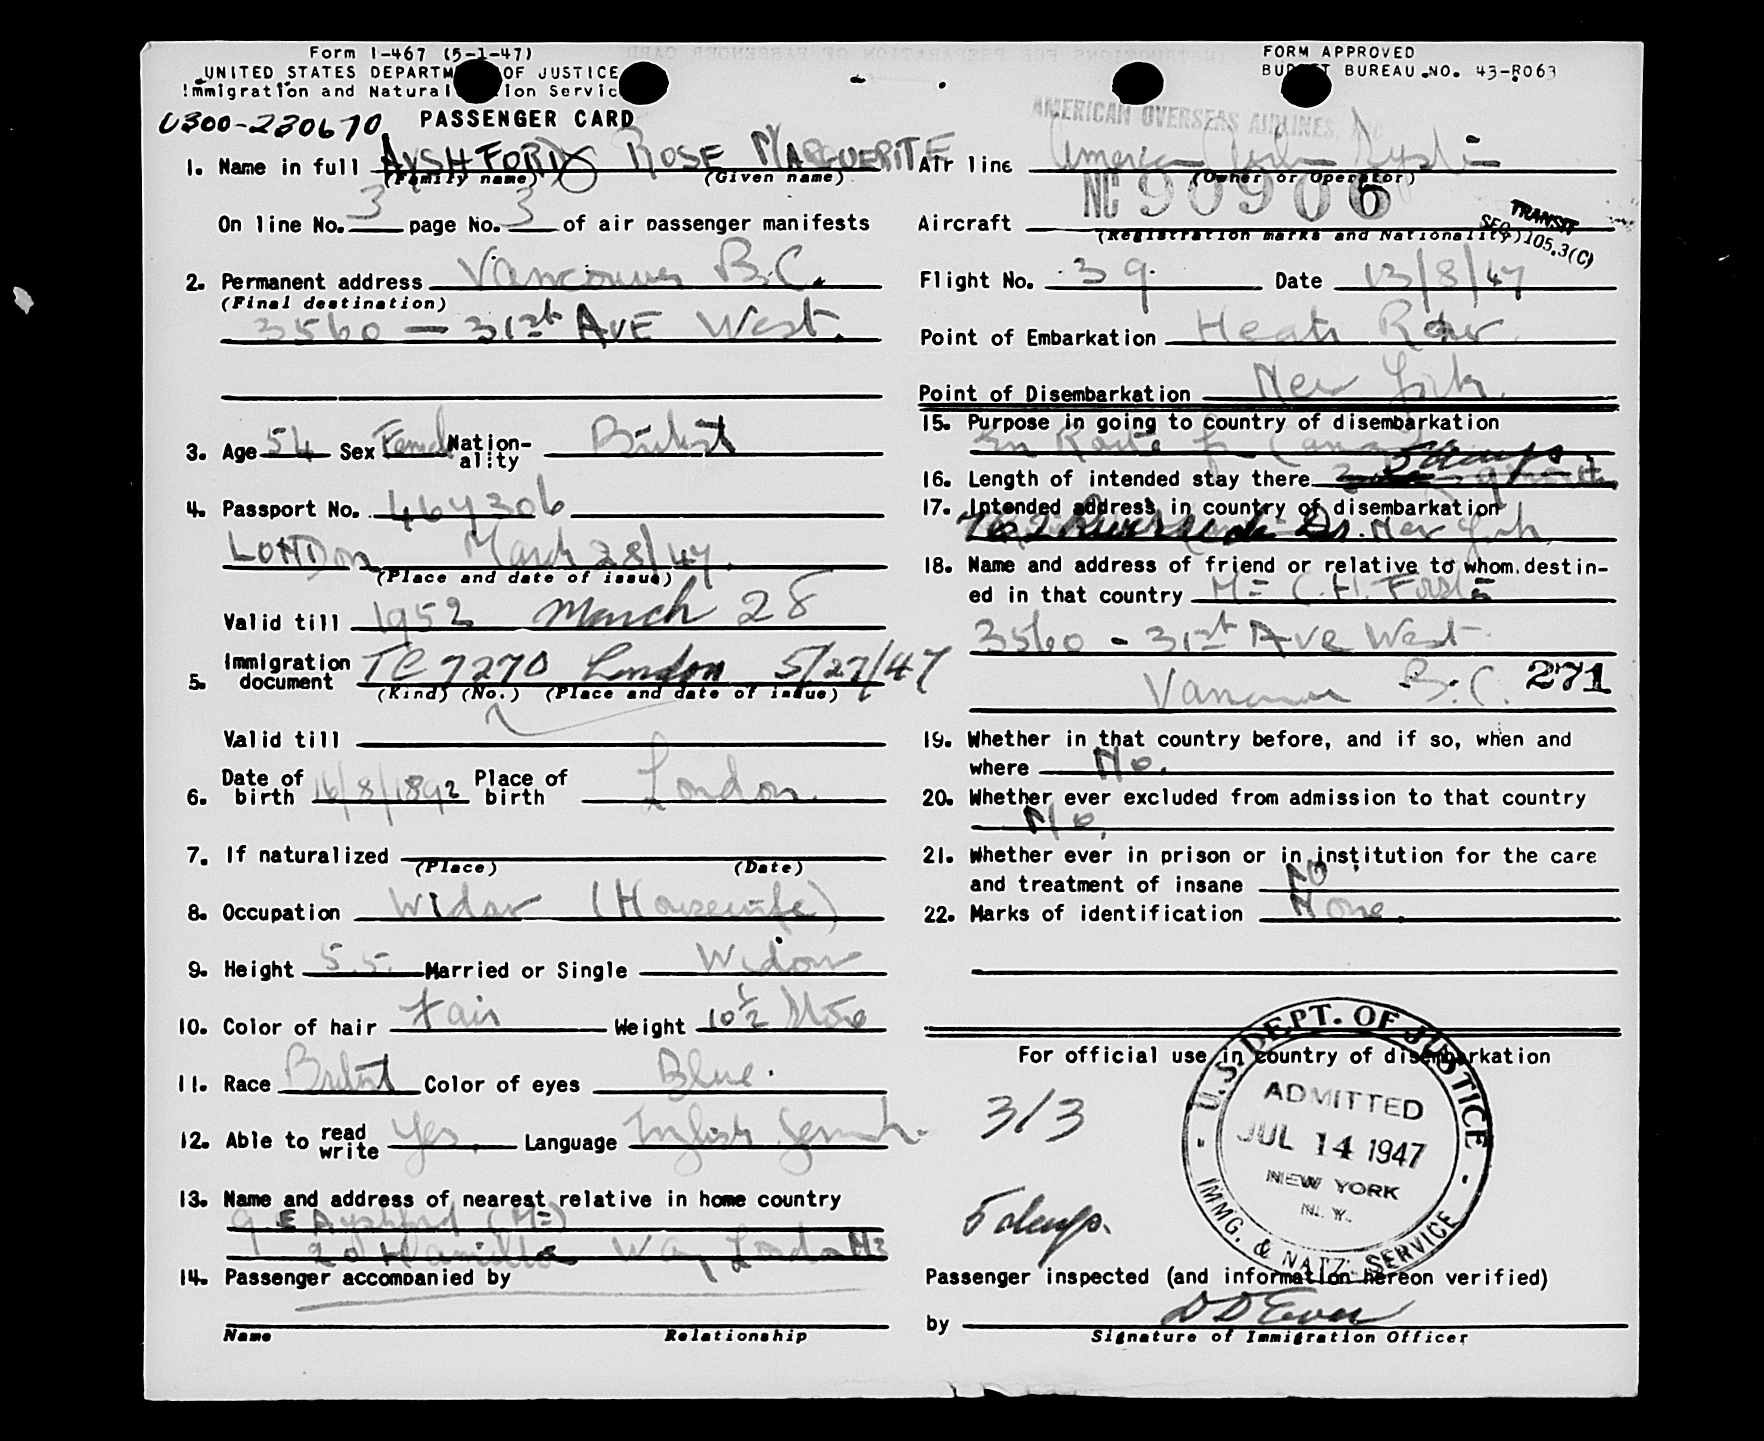 Form I-467 (5-1-47)
UNITED STATES DEPARTM OF JUSTICE
Immigration and Natural ion Servic
FORM APPROVED
BUD T BUREAU NO. 43-R063
0300-230670
PASSENGER CARD
AMERICAN OVERSEAS AIRLINES, INC
1. Name in full AYSHFORD ROSE MARGUERITE
(Family name) (Given name)
On line No. 3 page No. 3 of air passenger manifests
2. Permanent address Vancouver B.C.
(Final destination)
3560 - 31st AVE West.
3. Age 54 Sex Female Nationality British
4. Passport No. 464306
LONDON March 28/47.
(Place and date of issue)
Valid till 1952 March 28
5. Immigration document TC 7270 London 5/27/47
(Kind) (No.) (Place and date of issue)
Valid till
6. Date of birth 16/8/1892 Place of birth London
7. If naturalized
(Place) (Date)
8. Occupation Widow (Housewife)
9. Height 5.5. Married or Single Widow
10. Color of hair Fair Weight 10 1/2 Stone
11. Race British Color of eyes Blue.
12. Able to read write Yes. Language English French.
13. Name and address of nearest relative in home country
E Ayshford
Way London
14. Passenger accompanied by
Name Relationship
Air line American
(Owner or Operator)
Aircraft NC 90906
(Registration marks and Nationality)
TRANSIT
SEC. 105.3(C)
Flight No. 39. Date 13/8/47
Point of Embarkation Heath Row
Point of Disembarkation New York.
15. Purpose in going to country of disembarkation
En Route to Canada
16. Length of intended stay there 5 days.
17. Intended address in country of disembarkation
762 Riverside Dr. New York
18. Name and address of friend or relative to whom destined in that country C.H.
3560 - 31st Ave West
Vancouver B.C. 271
19. Whether in that country before, and if so, when and
where No.
20. Whether ever excluded from admission to that country
No.
21. Whether ever in prison or in institution for the care
and treatment of insane No
22. Marks of identification None.
For official use in country of disembarkation
3/3
5 days.
U.S. DEPT. OF JUSTICE
ADMITTED
JUL 14 1947
NEW YORK
N. Y.
IMMG. & NATZ. SERVICE
Passenger inspected (and information hereon verified)
by
Signature of Immigration Officer